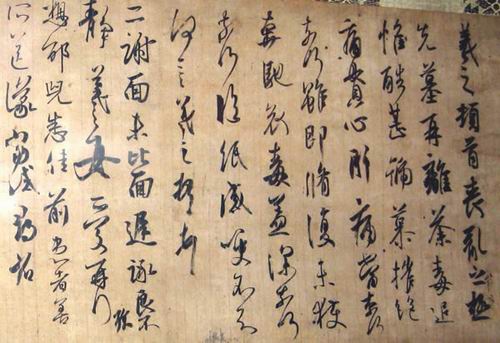 羲之頓首喪亂之極
先墓再離荼毒追
惟酷甚號慕摧絕
痛貫心肝痛當奈何
奈何雖即脩復未獲
奔馳哀毒益深奈何
奈何臨紙感哽不知
何言羲之頓首
二謝面未比面遲詠良不
靜羲之女愛再拜
想邰兒悉佳前患者善
所送議當試尋省